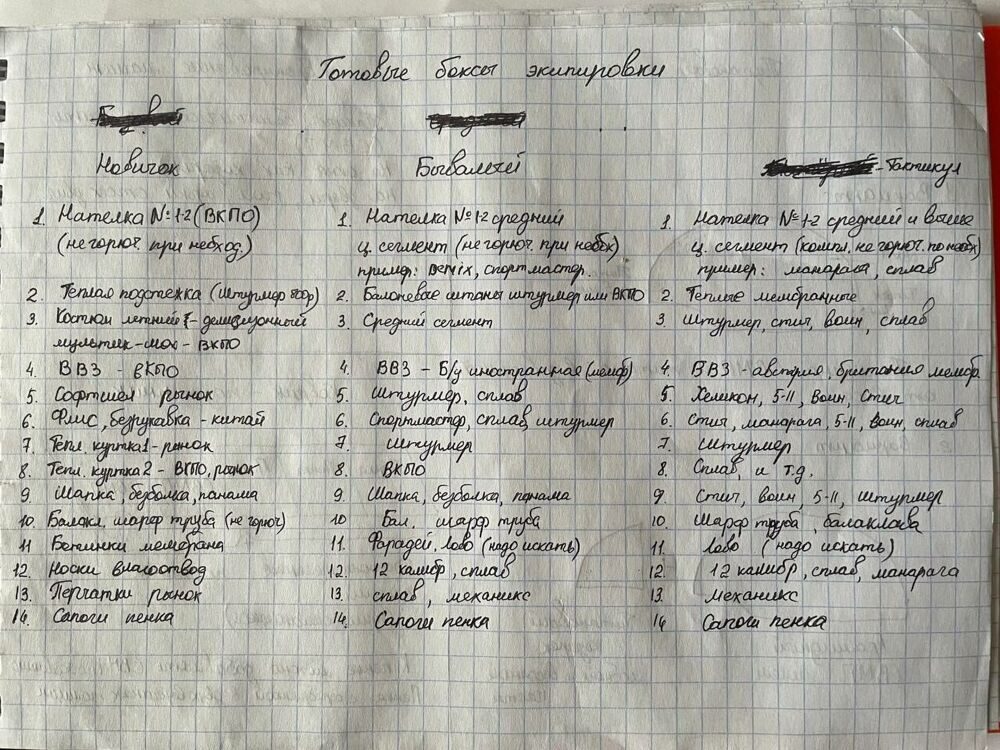 Готовые боксы экипировки
Новичок
1. Нателка №1-2 (ВКПО)
(не горюч. при необход.)
2. Теплая подстежка (штурмер
3. Костюм летний - демисезонный
мультик-мох - ВКПО
4. ВВЗ - ВКПО
5. Софтшел рынок
6. Флис, безрукавка - китай
7. Тепл. куртка1 - рынок
8. Тепл. куртка2 - ВКПО, рынок
9. Шапка, безболка, панама
10. Балакл. шарф труба (не горюч)
11 Ботинки мембрана
12. Носки влагоотвод
13. Перчатки рынок
14. Сапоги пенка
Бывалый
1. Нателка №1-2 средний
ц. сегмент (не горюч. при необх)
пример: Demix, спортмастер.
2. Балоневые штаны штурмер или ВКПО
3. Средний сегмент
4. ВВЗ - Б/у иностранная (мемб)
5. Штурмер, сплав
6. Спортмастер, сплав, штурмер
7. Штурмер
8. ВКПО
9. Шапка, безболка, панама
10 Бал. шарф труба
11. Фарадей, лово (надо искать)
12. 12 калибр, сплав
13. сплав, механикс
14. Сапоги пенка
- Тактикул
1. Нателка №1-2 средний и выше
ц. сегмент (компл. не горюч. по необх)
пример: манарага, сплав
2. Теплые мембранные
3. Штурмер, стич, воин, сплав
4. ВВЗ - австрия, британия мембр.
5. Хеликон, 5-11, Воин, Стич
6. Стич, манарага, 5-11, воин, сплав
7. Штурмер
8. Сплав, и т.д.
9. Стич, воин, 5-11, штурмер
10. Шарф труба, балаклава
11. Лово (надо искать)
12. 12 калибр, сплав, манарага
13. Механикс
14 Сапоги пенка